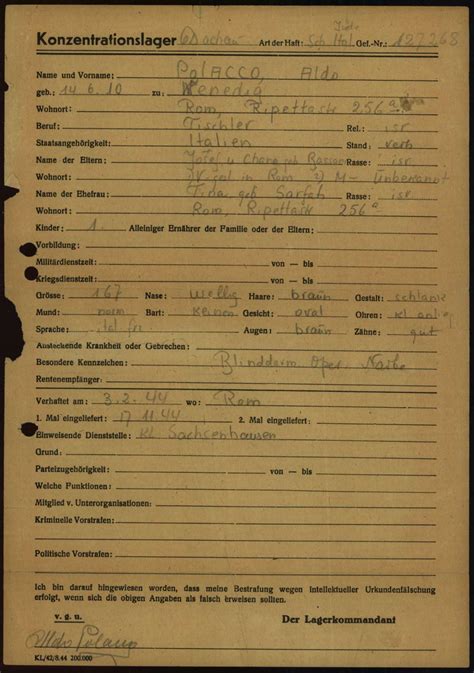 Jude
Konzentrationslager Dachau Art der Haft: Sch Ital Gef.-Nr.: 127268
Name und Vorname: POLACCO, Aldo
geb.: 14.6.10 zu: Venedig
Wohnort: Rom, Ripettastr 256a
Beruf: Tischler Rel.: isr
Staatsangehörigkeit: Italien Stand: verh
Name der Eltern: Josef u. geb Rasse: isr
Wohnort: in Rom M- Unbekannt
Name der Ehefrau: Tina geb. Rasse: isr
Wohnort: Rom, Ripettastr 256a
Kinder: 1. Alleiniger Ernährer der Familie oder der Eltern:
Vorbildung:
Militärdienstzeit: von — bis
Kriegsdienstzeit: von — bis
Grösse: 167 Nase: wellig Haare: braun Gestalt: schlank
Mund: norm Bart: keinen Gesicht: oval Ohren: kl anlieg
Sprache: ital fr Augen: braun Zähne: gut
Ansteckende Krankheit oder Gebrechen:
Besondere Kennzeichen: Blinddarm Oper. Narbe
Rentenempfänger:
Verhaftet am: 3.2.44 wo: Rom
1. Mal eingeliefert: 17.11.44 2. Mal eingeliefert:
Einweisende Dienststelle: KL Sachsenhausen
Grund:
Parteizugehörigkeit: von — bis
Welche Funktionen:
Mitglied v. Unterorganisationen:
Kriminelle Vorstrafen:
Politische Vorstrafen:
Ich bin darauf hingewiesen worden, dass meine Bestrafung wegen intellektueller Urkundenfälschung
erfolgt, wenn sich die obigen Angaben als falsch erweisen sollten.
v. g. u. Der Lagerkommandant
Aldo Polacco
KL/42/8.44 200.000